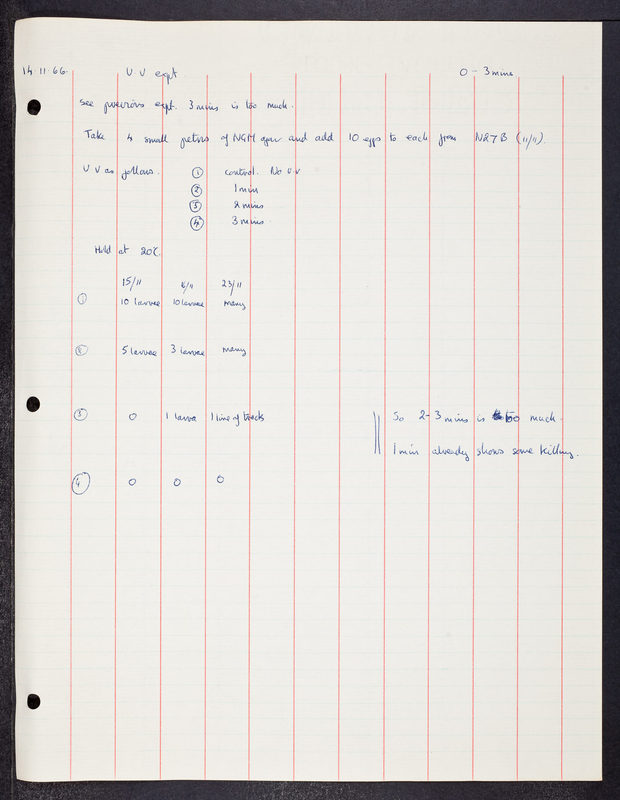 14.11.66. U V expt. 0 - 3 mins
see previous expt. 3 mins is too much.
Take 4 small petris of NGM agar and add 10 eggs to each from N27B (11/11).
U V as follows. ① control. No U.V
② 1 min
③ 2 mins
④ 3 mins
Hold at 20C.
15/11 16/11 23/11
① 10 larvae 10 larvae many
② 5 larvae 3 larvae many
③ 0 1 larva 1 line of tracks So 2-3 mins is too much.
1 min already shows some killing.
④ 0 0 0